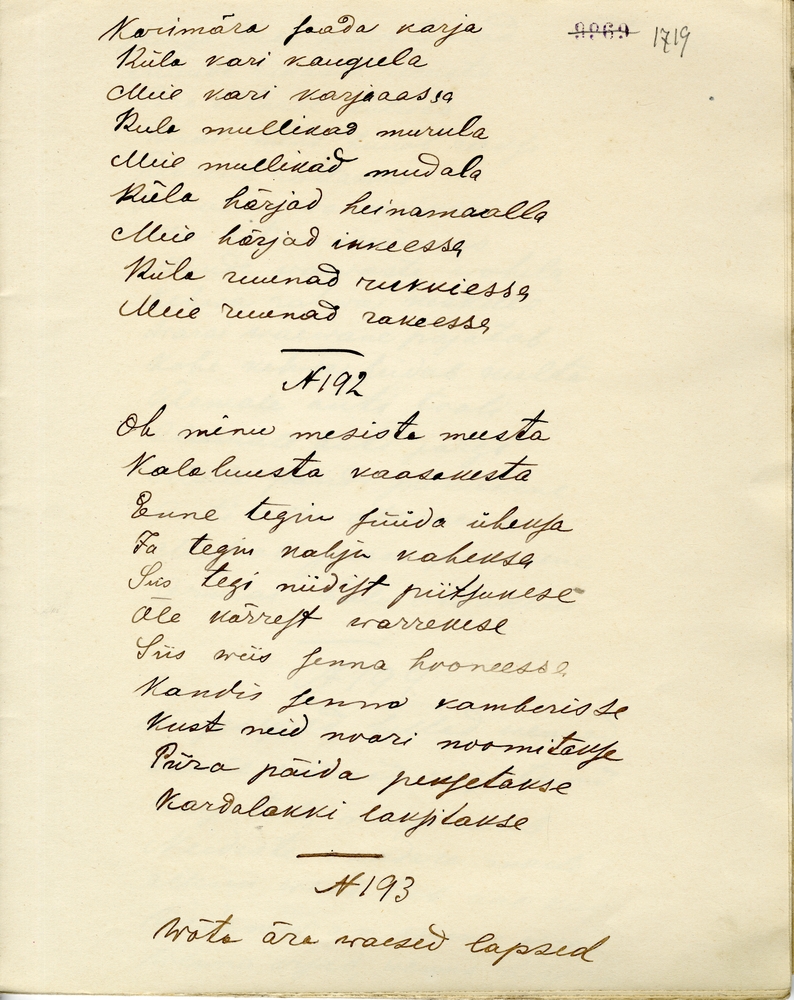 9969 1719
Karimära saada karja
Küla kari kaugella
Meie kari karjaaassa
Küla mullikad murula
Meie mullikad mudala
Küla härjad heinamaalla
Meie härjad ikkeessa
Küla ruunad rukkiessa
Meie ruunad rakeessa
N 192
Oh minu mesista meesta
Kalaluusta kaasakesta
Enne tegin süüda üheksa
Ja tegin nalju kaheksa
Siis tegi niidist piitsukese
Õle kõrrest warrekese
Siis wiis senna hooneessa
Kandis senna kamberisse
Kust neid noori noomitakse
Pära päida peksetakse
Kardalakki laksitakse
N 193
Wõta ära waesed lapsed